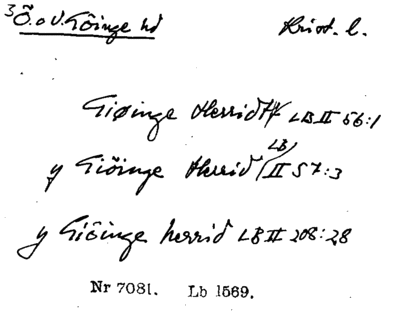 3 Ö. o V. Göinge hd Krist. l.
Giøinge Herridtz LB II 56:1
y Giöinge Herrid / LB II 57:3
y Giöinge herrid LB II 208:28
Nr 7081. Lb 1569.